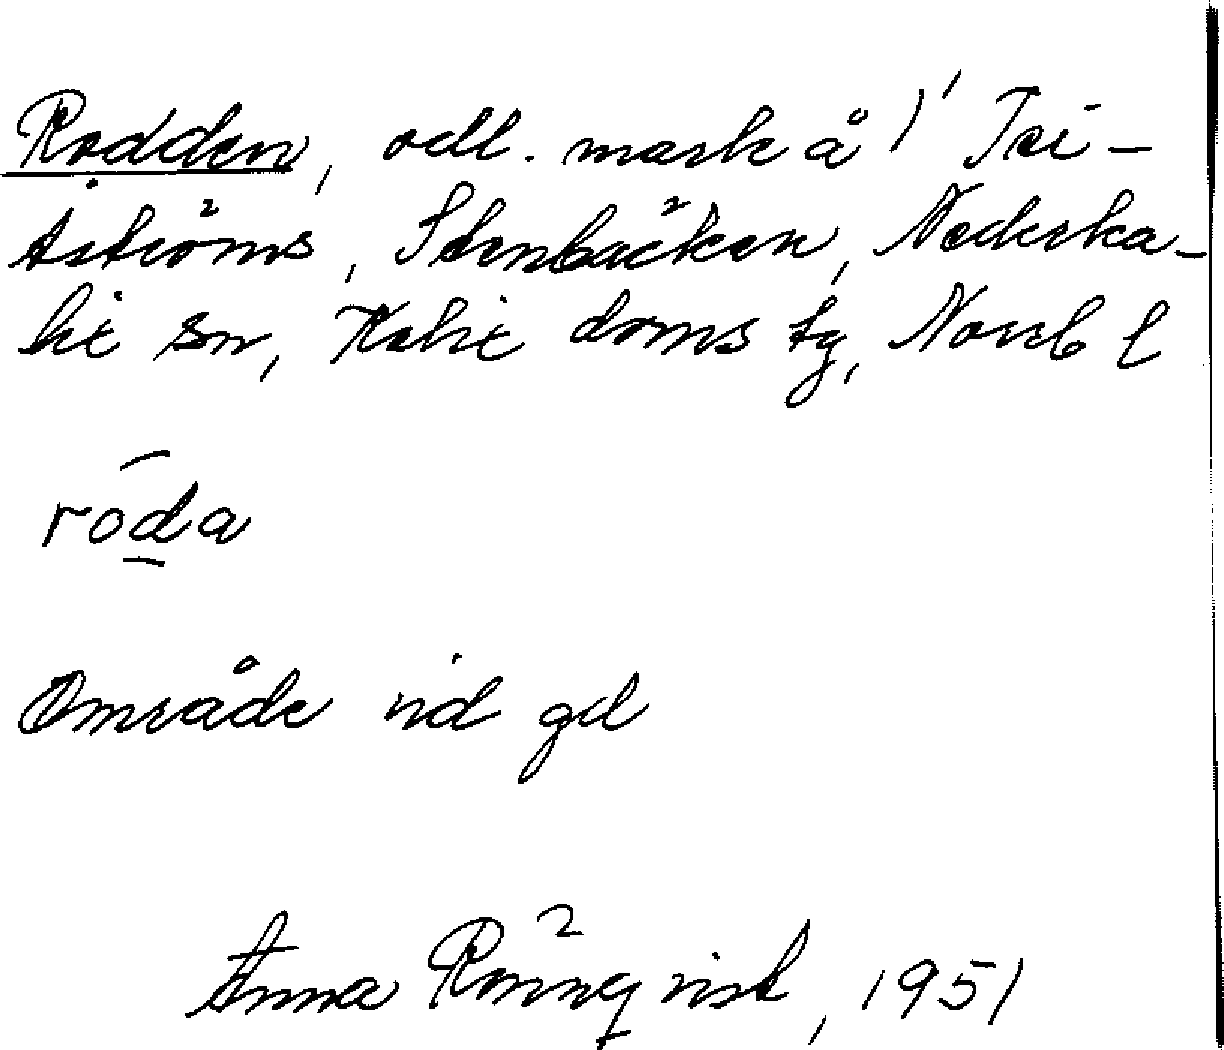 Rodden, odl. mark å 1/ Tei-
Åströms, Stenbäcken, Nederka-
lix sn, Kalix doms tg, Norrb l
ro̅d̲a
Område vid gd
Anna Rönnqvist, 1951